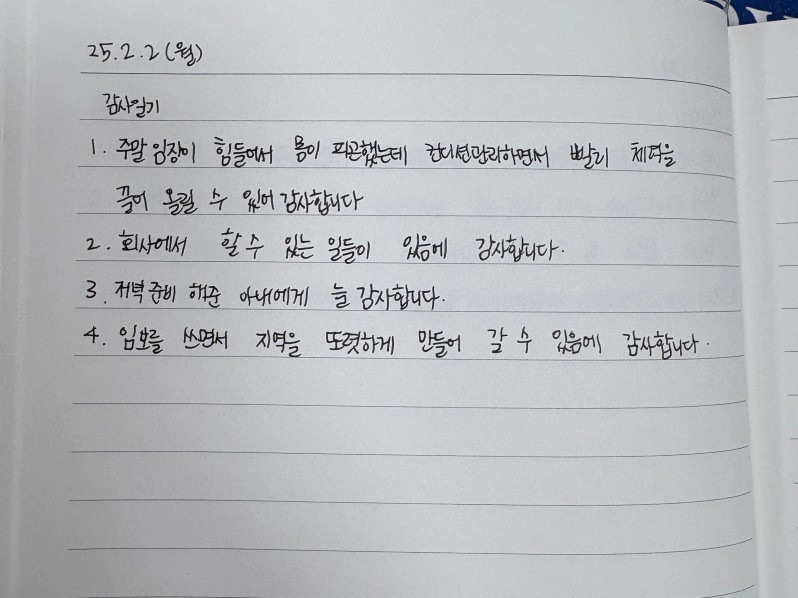 25.2.2(월)
감사일기
1. 주말 임장이 힘들어서 몸이 피곤했는데 컨디션관리하면서 빨리 체력을
끌어 올릴 수 있어 감사합니다
2. 회사에서 할 수 있는 일들이 있음에 감사합니다.
3. 저녁준비 해준 아내에게 늘 감사합니다.
4. 임보를 쓰면서 지역을 또렷하게 만들어 갈 수 있음에 감사합니다.